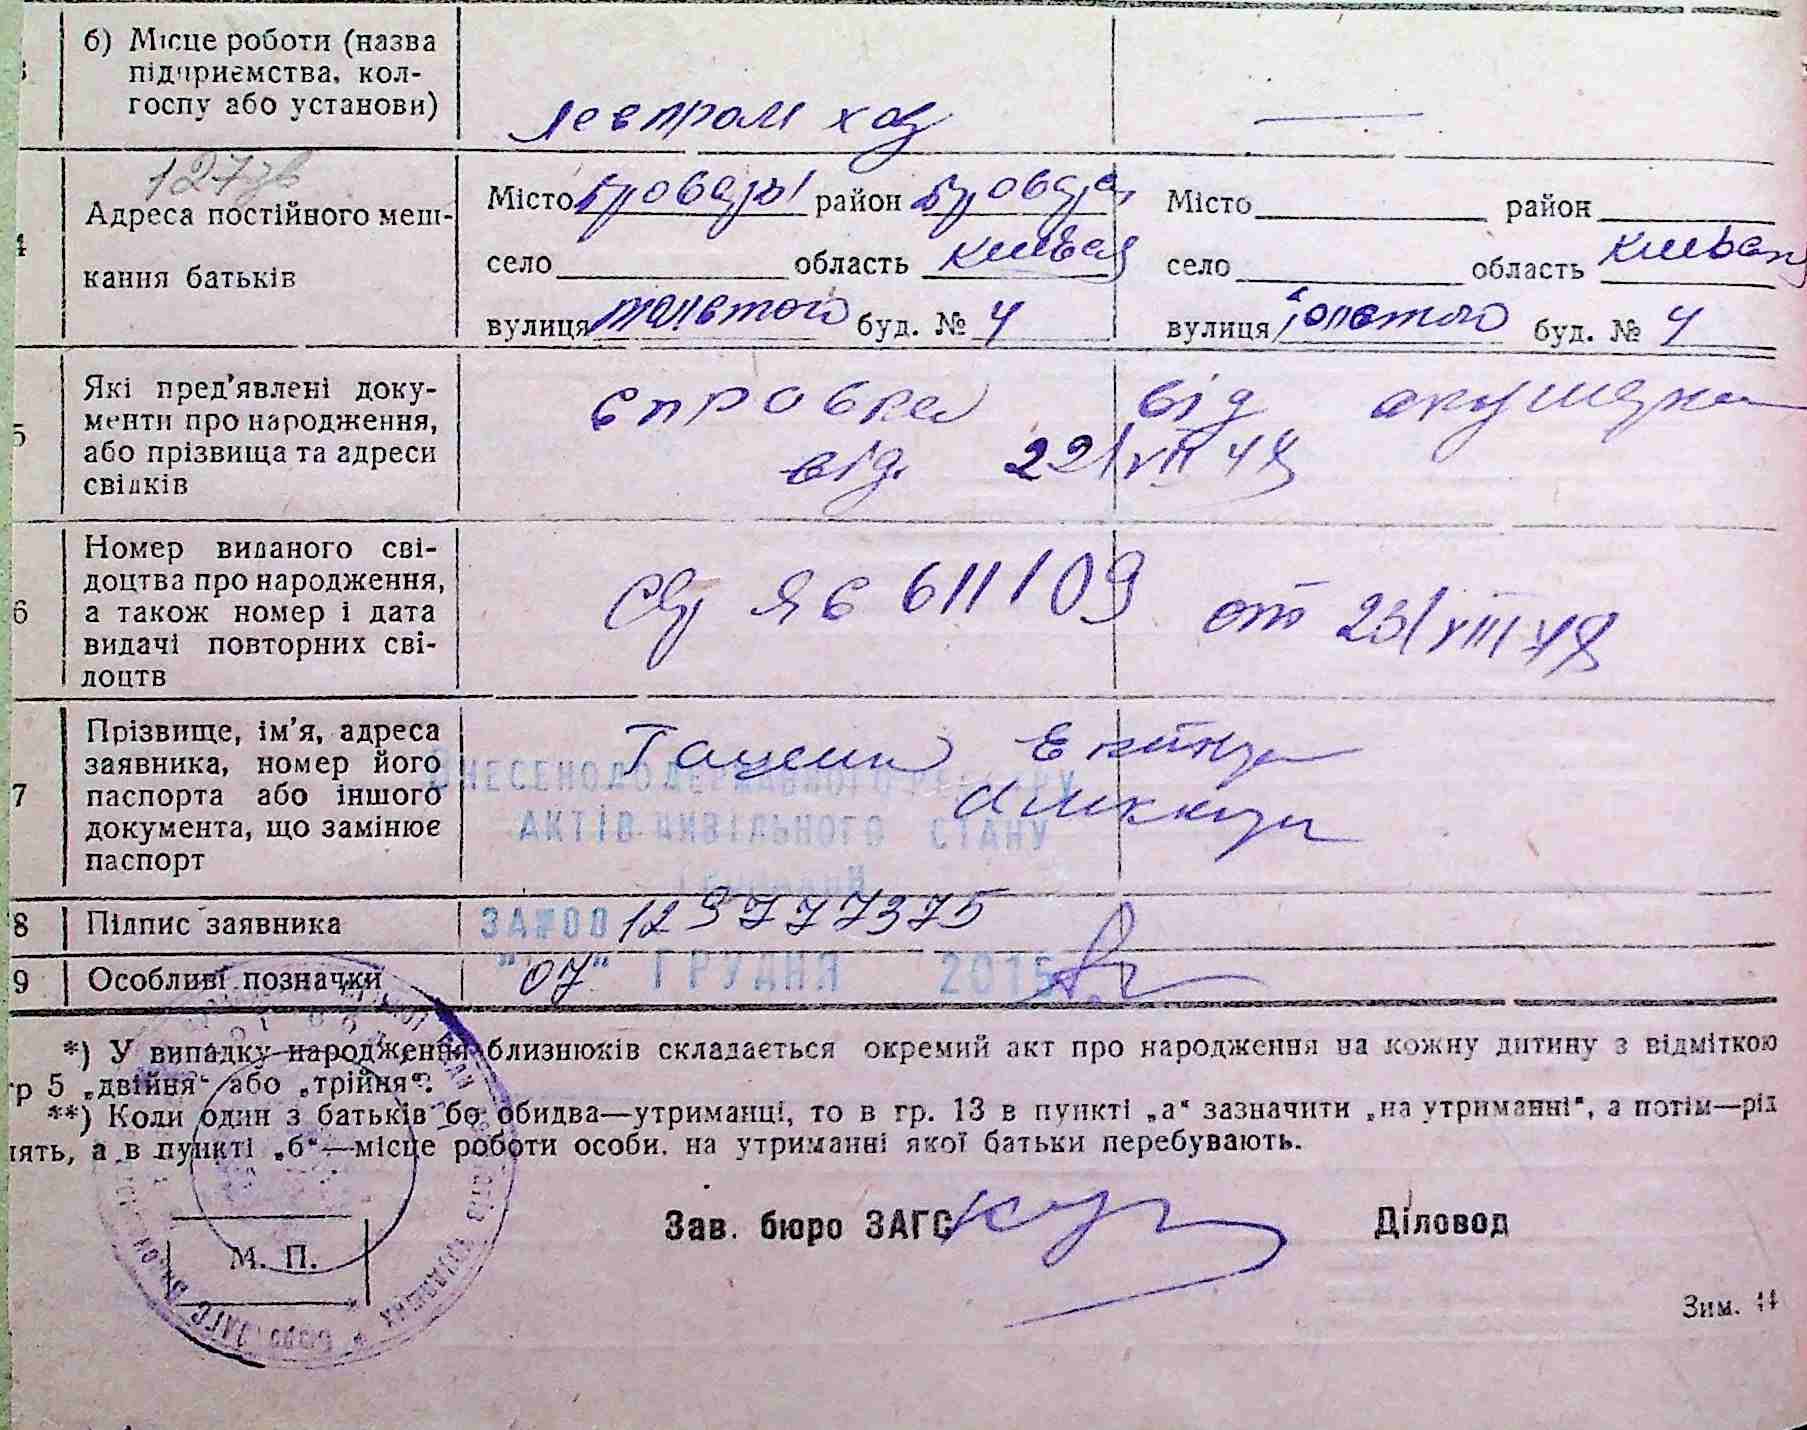 б) Місце роботи (назва
підприємства, кол-
госпу або установи)
4 Адреса постійного меш-
кання батьків
Місто Бровары район Бровар
село область Київська
вулиця Толстого буд. № 4
Місто район
село область Київська
вулиця Толстого буд. № 4
5 Які пред'явлені доку-
менти про народження,
або прізвища та адреси
свідків
справка від акушерки
від 22/VIII 48
6 Номер виданого сві-
доцтва про народження,
а також номер і дата
видачі повторних сві-
доцтв
611109 от 23/VIII 48
7 Прізвище, ім'я, адреса
заявника, номер його
паспорта або іншого
документа, що замінює
паспорт
ВНЕСЕНО ДО ДЕРЖАВНОГО РЕЄСТРУ
АКТІВ ЦИВІЛЬНОГО СТАНУ
ГРОМАДЯН
8 Підпис заявника
ЗА №00 129777375
9 Особливі позначки
"07" ГРУДНЯ 2015
*) У випадку народження близнюків складається окремий акт про народження на кожну дитину з відміткою
гр 5 „двійня“ або „трійня“.
**) Коли один з батьків бо обидва—утриманці, то в гр. 13 в пункті „а“ зазначити „на утриманні“, а потім—рід
нять, а в пункті „б“—місце роботи особи. на утриманні якої батьки перебувають.
Зав. бюро ЗАГС
Діловод
М. П.
Зим. 44